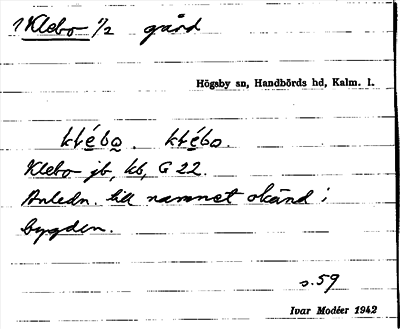 1 Klebo 1/2 gård
Högsby sn, Handbörds hd, Kalm. l.
klébo̲. klébo.
Klebo jb, kb, G 22.
Anledn. till namnet okänd i
bygden.
s. 59
Ivar Modéer 1942